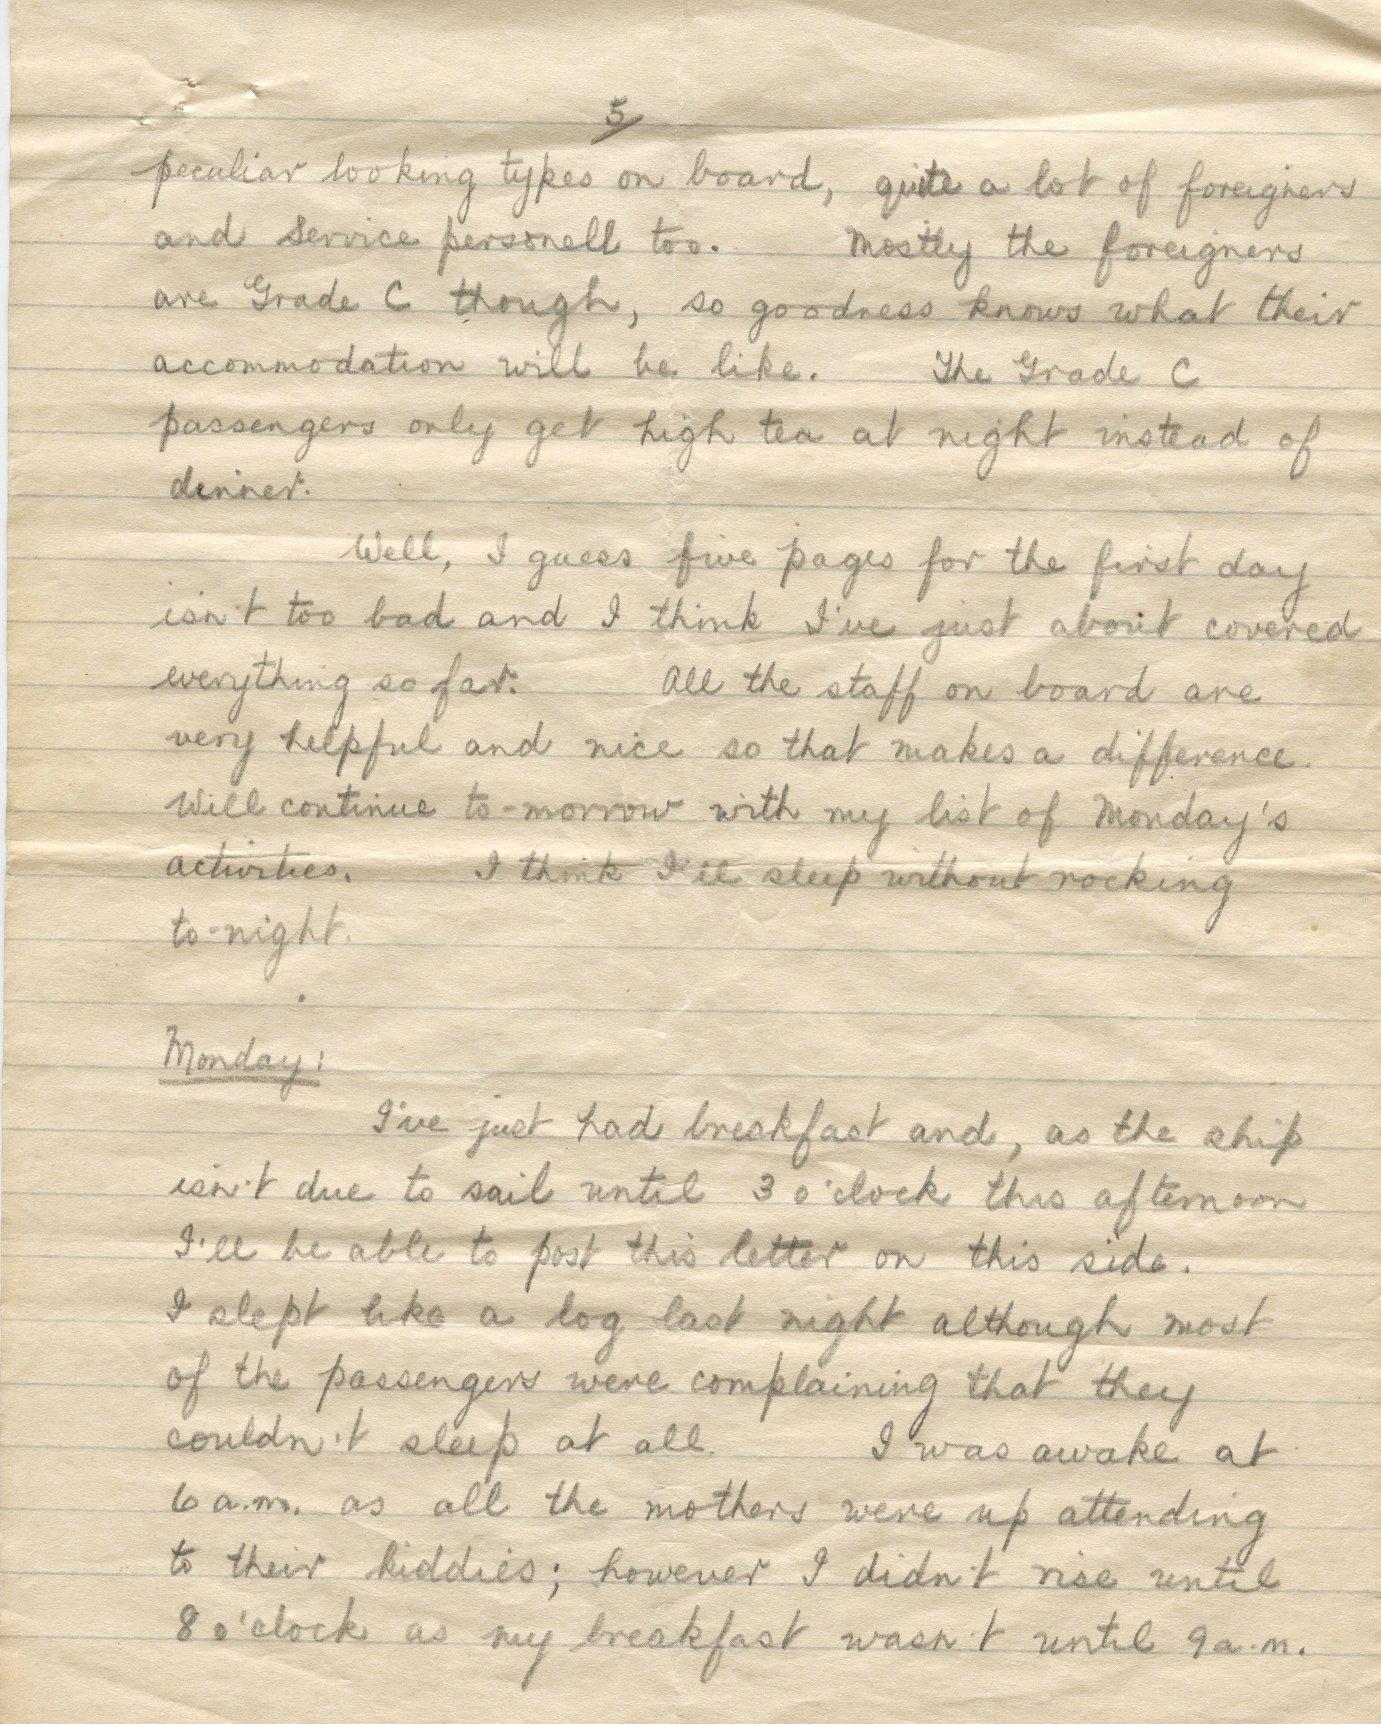 5/
peculiar looking types on board, quite a lot of foreigners
and Service personell too. Mostly the foreigners
are Grade C though, so goodness knows what their
accommodation will be like. The Grade C
passengers only get high tea at night instead of
dinner.
Well, I guess five pages for the first day
isn't too bad and I think I've just about covered
everything so far. All the staff on board are
very helpful and nice so that makes a difference.
Will continue to-morrow with my list of Monday's
activities. I think I'll sleep without rocking
to-night.
Monday:
I've just had breakfast and, as the ship
isn't due to sail until 3 o'clock this afternoon
I'll be able to post this letter on this side.
I slept like a log last night although most
of the passengers were complaining that they
couldn't sleep at all. I was awake at
6 a.m. as all the mothers were up attending
to their kiddies; however I didn't rise until
8 o'clock as my breakfast wasn't until 9 a.m.